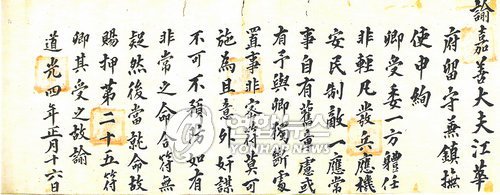 諭嘉善大夫江華
府留守兼鎮撫
使申絢
卿受委一方體任
非輕凡發兵應機
安民制敵一應常
事自有舊章慮或
有予與卿獨斷處
置事非密符莫可
施為且意外奸謀
不可不預防如有
非常之命合符無
疑然後當就命故
賜押第二十五符
卿其受之故諭
道光四年正月十六日
연합뉴스
YONHAP NEWS